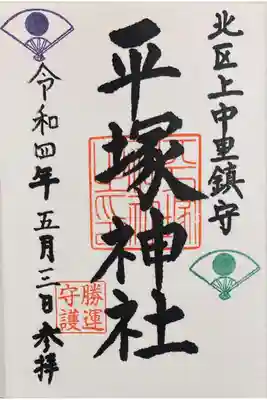 北区上中里鎮守
平塚神社
勝運
守護
令和四年五月三日参拝